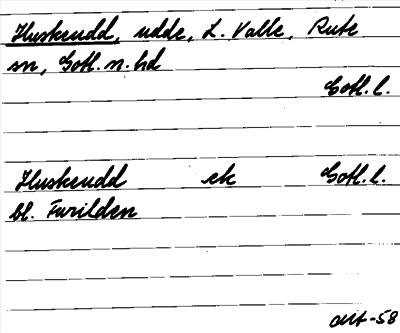 Huskeudd, udde, L. Valle, Rute
sn, Gotl. n. hd
Gotl. l.
Huskeudd ek Gotl. l.
bl. Furilden
-58